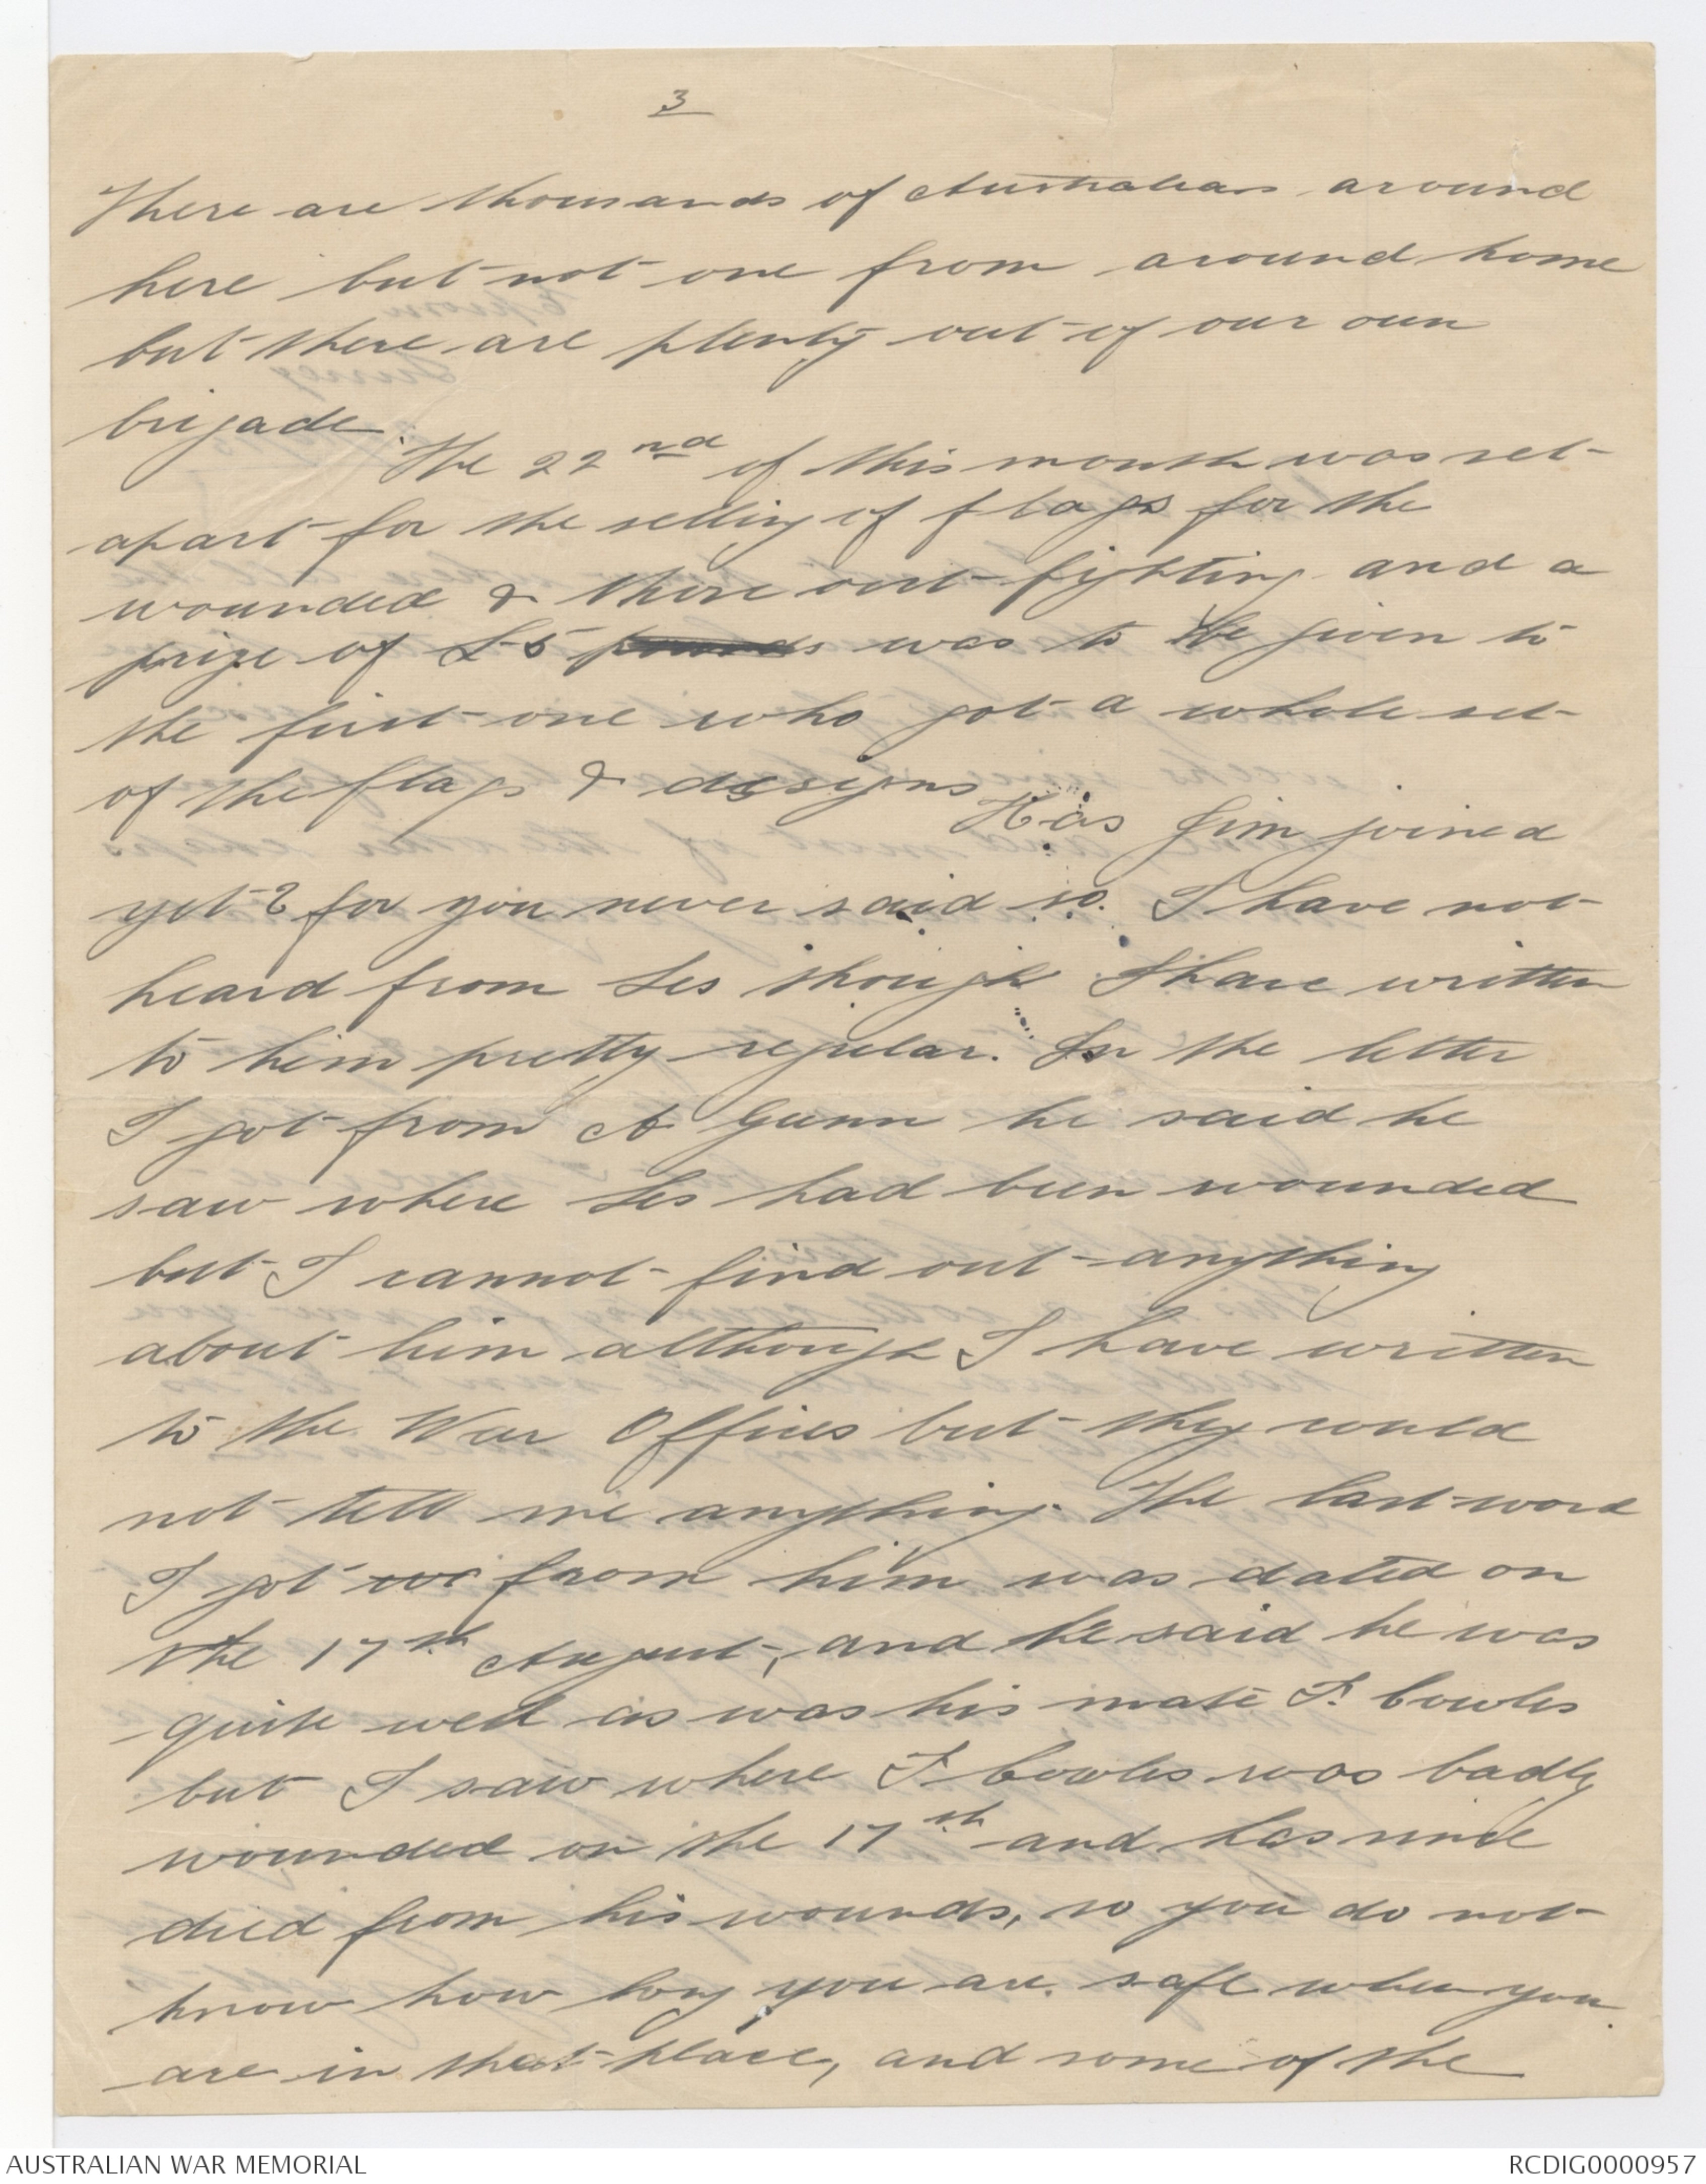 3
There are thousands of Australians around
here but not one from around home
but there are plenty out of our own
brigade.
The 22nd of this month was set
apart for the selling of flags for the
wounded & those out fighting and a
prize of £5 pounds was to be given to
the first one who got a whole set
of the flags & designs
Has Jim joined
yet? for you never said so. I have not
heard from Les though I have written
to him pretty regular. In the letter
I got from A Gunn he said he
saw where Les had been wounded
but I cannot find out anything
about him although I have written
to the War Offices but they could
not tell me anything. The last word
I got from him was dated on
the 17th August, and he said he was
quite well as was his mate F. Cowles
but I saw where F Cowles was badly
wounded on the 17th and has since
died from his wounds, so you do not
know how long you are safe when you
are in that place, and some of the
AUSTRALIAN WAR MEMORIAL
RCDIG0000957